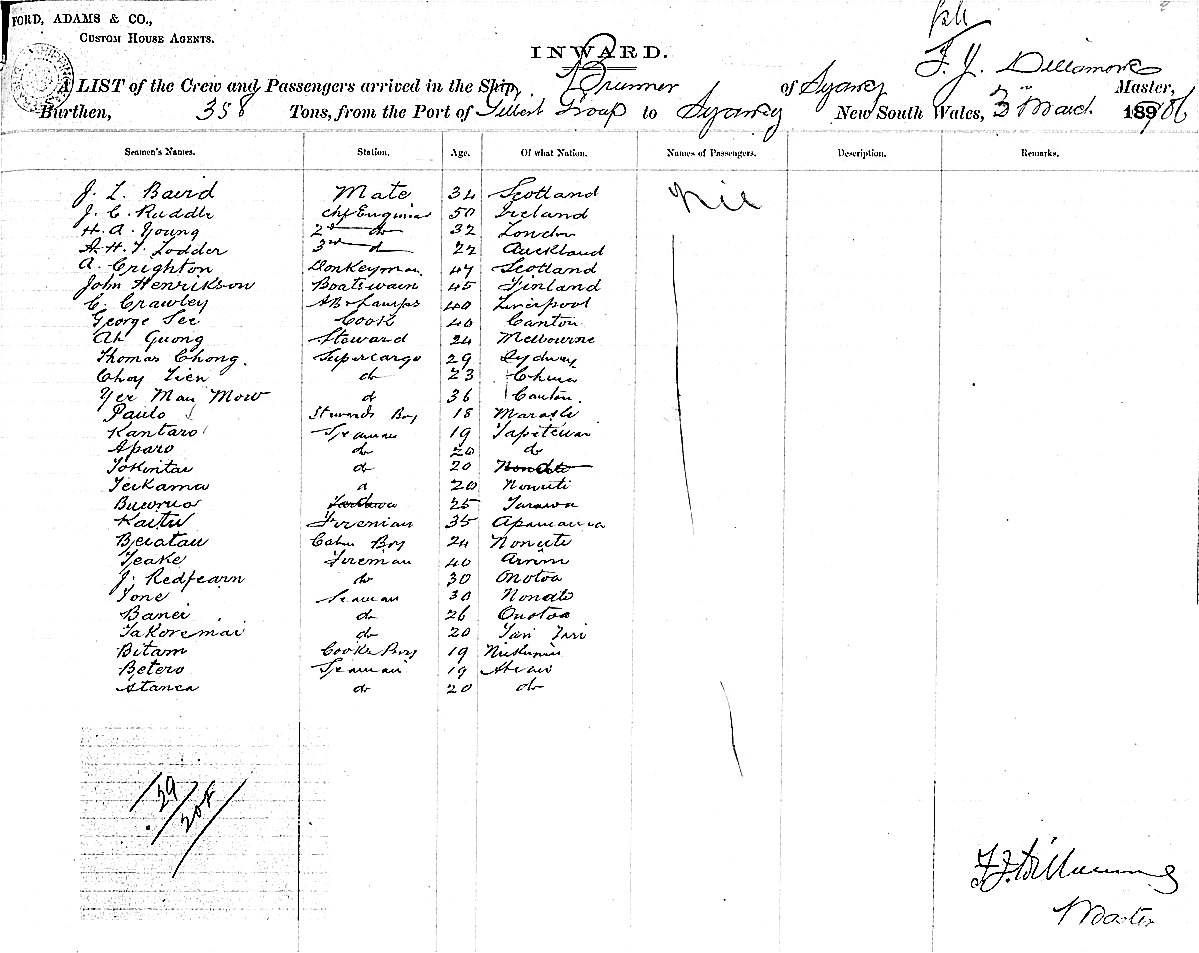 FORD, ADAMS & CO.,
CUSTOM HOUSE AGENTS.
INWARD.
F. J. Dillamore
A LIST of the Crew and Passengers arrived in the Ship, Brunner of Sydney Master,
Burthen, 358 Tons, from the Port of Gilbert Group to Sydney New South Wales, 3 March 1896
Seamen's Names. Station. Age. Of what Nation. Names of Passengers. Description. Remarks.
J. L. Baird Mate 34 Scotland Nil
J. C. Ruddle Chf Engineer 50 Ireland
H. A. Young 2nd do 32 London
A. H. T. Lodder 3rd d 22 Auckland
A. Crighton Donkeyman 47 Scotland
John Henrikson Boatswain 45 Finland
C. Crawley AB & Lamps 40 Liverpool
George See Cook 40 Canton
Ah Guong Steward 24 Melbourne
Thomas Chong. Supercargo 29 Sydney
Choy Lien do 23 China
Yee Man Mow d 36 Canton.
Paulo Stewards Boy 18
Kantaro Seaman 19 Tapiteuai
Aparo do 20 do
Tokintai do 20
Teikama d 20 Nonuti
25 Tarawa
Kaitu Fireman 35 Apamama
Beiatau Cabin Boy 24 Nonuti
Teake Fireman 40
J. Redfearn do 30 Onotoa
Tone Seaman 30
Banei do 26
Takoremai do 20
Bitam Cooks Boy 19
Betero Seaman 19
Atanea do 20 do
29
F J Dillamore
Master